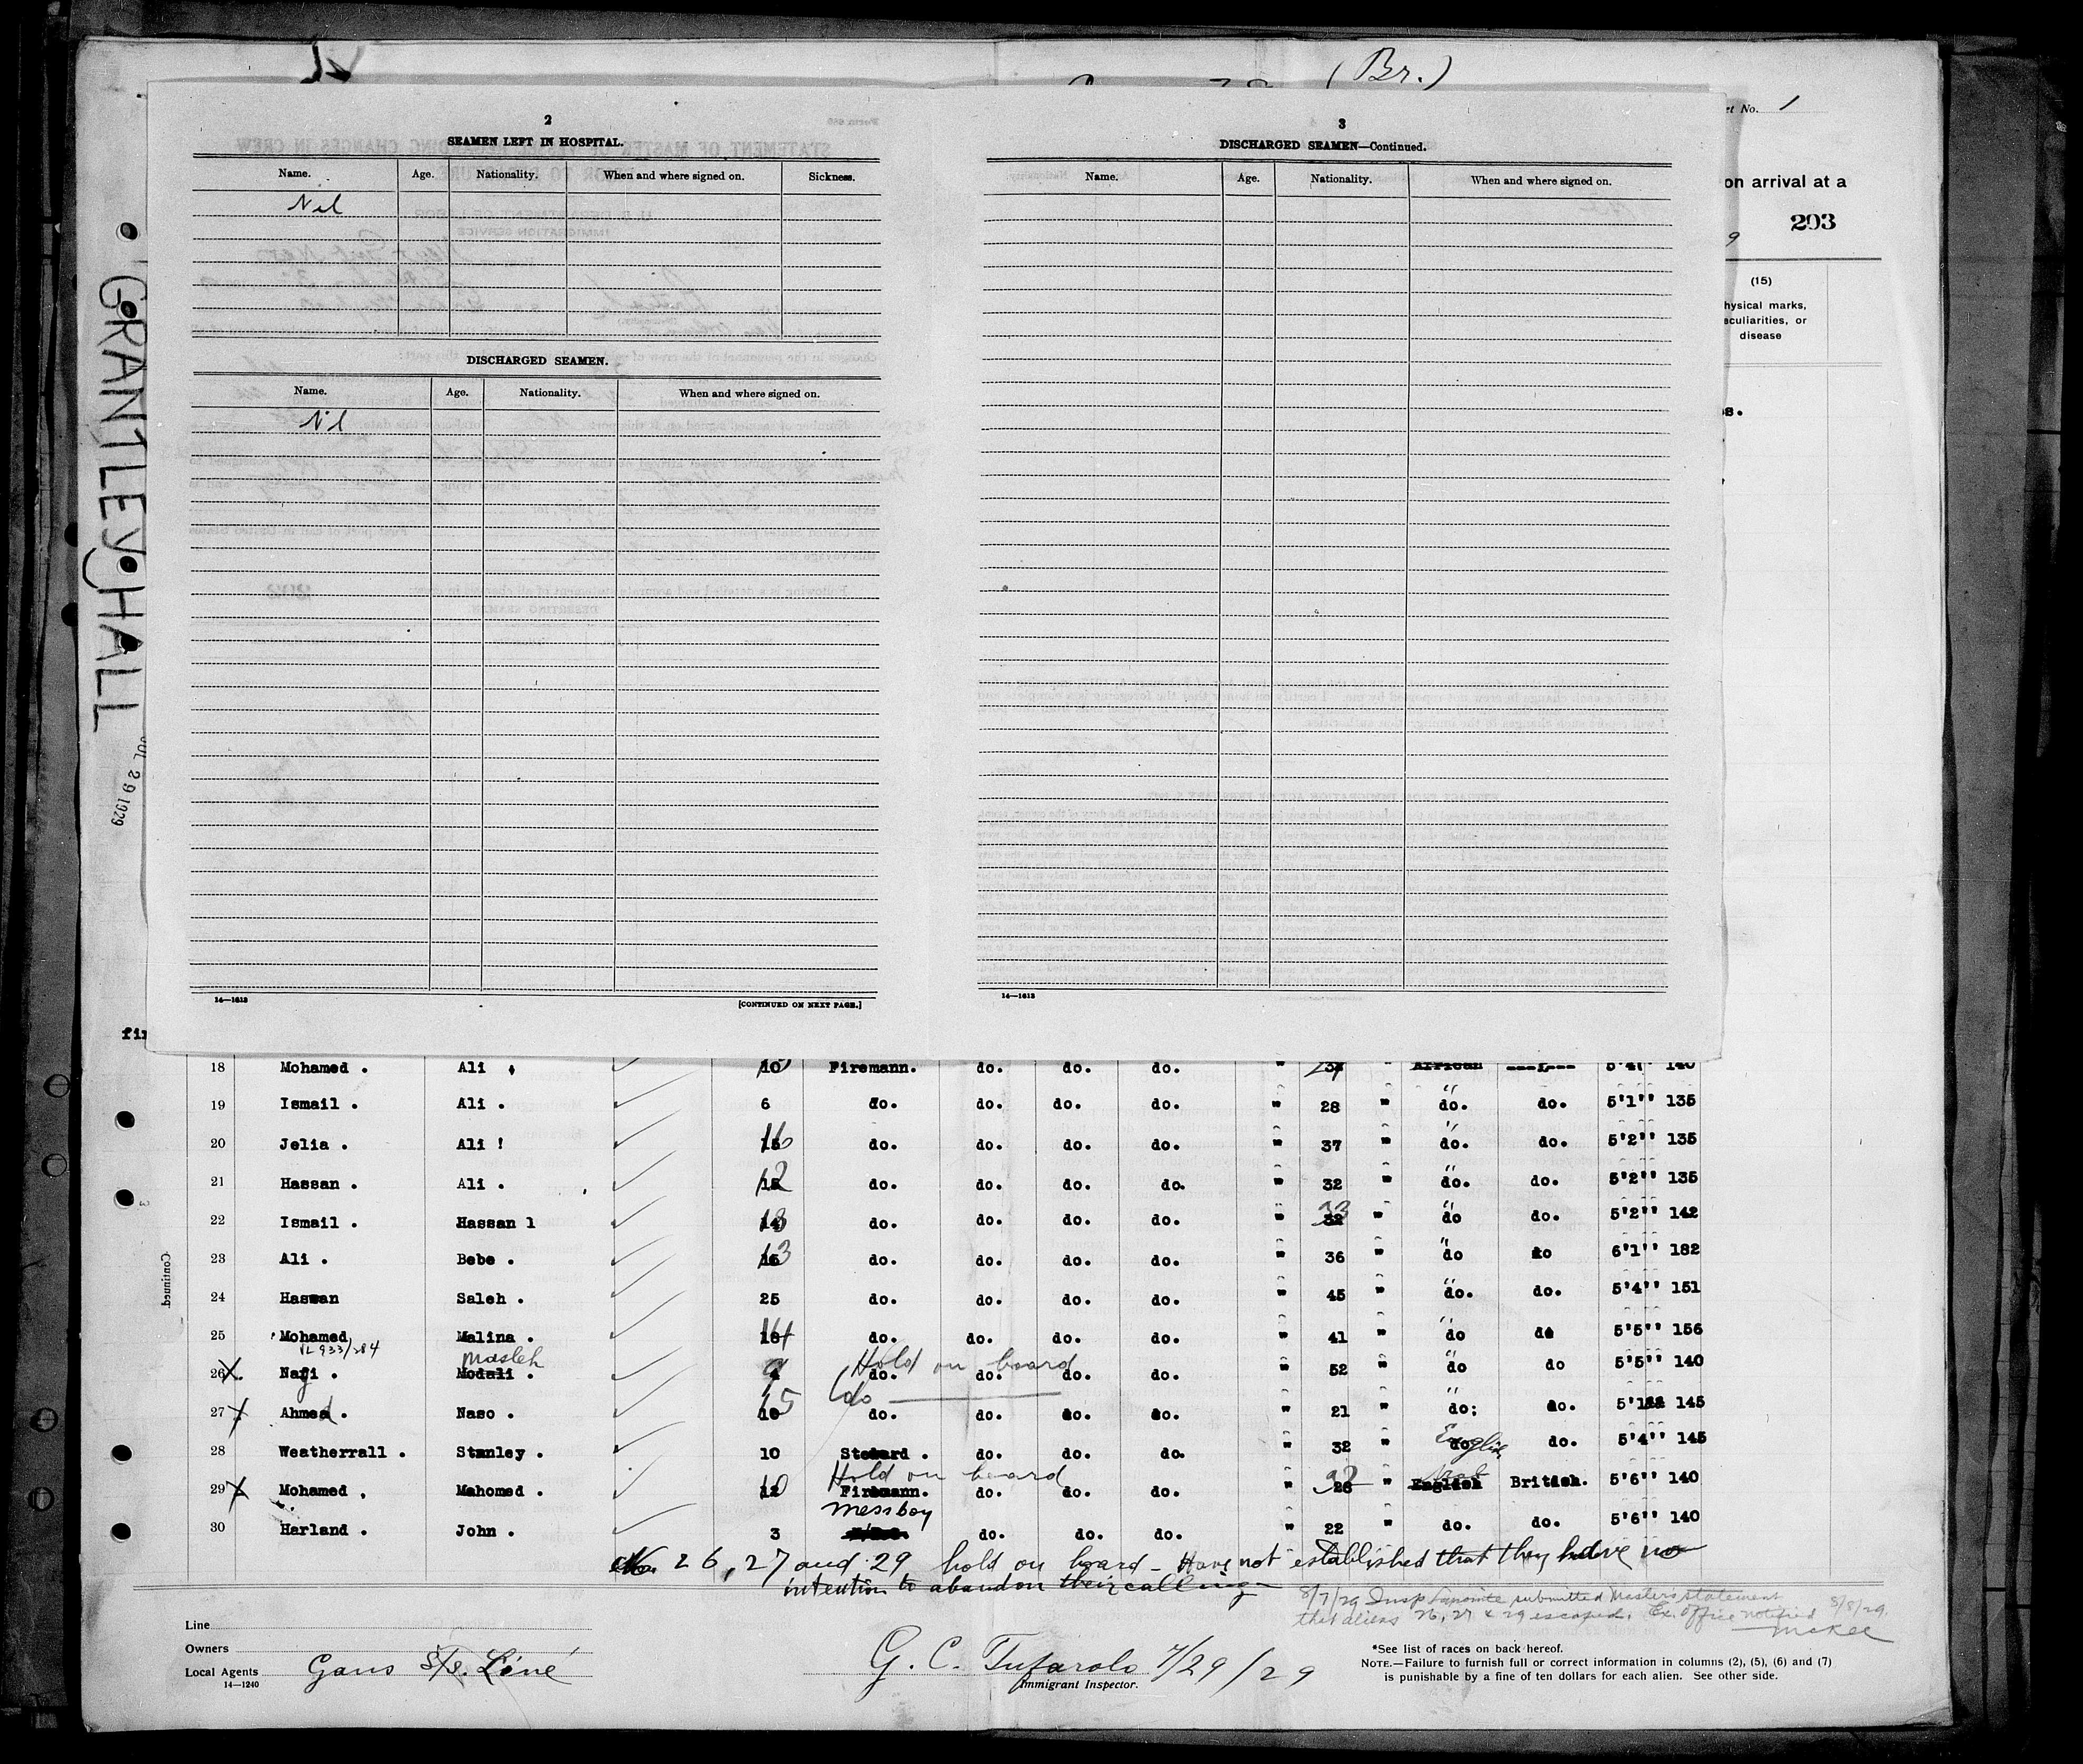 (Br.)
et No. 1
on arrival at a
293
9
(15)
hysical marks,
eculiarities, or
disease
GRANTLEY HALL
JUL 29 1929
2
SEAMEN LEFT IN HOSPITAL.
Name. Age. Nationality. When and where signed on. Sickness.
Nil
DISCHARGED SEAMEN.
Name. Age. Nationality. When and where signed on.
Nil
14—1613 [CONTINUED ON NEXT PAGE.]
3
DISCHARGED SEAMEN—Continued.
Name. Age. Nationality. When and where signed on.
14—1613
fir
18 Mohamed . Ali . 10 Firemann. do. do. do. " " African 5'4" 140
19 Ismail . Ali . 6 do. do. do. do. " 28 " do. do. 5'1'' 135
20 Jelia . Ali ! 16 do. do. do. do. " 37 " do. do. 5'2'' 135
21 Hassan . Ali . 12 do. do. do. do. " 32 " do. do. 5'2'' 135
22 Ismail . Hassan 1 18 do. do. do. do. " 33 " do do. 5'2'' 142
23 Ali . Bebe . 13 do. do. do. do. " 36 " do do 6'1'' 182
24 Hassan Saleh . 25 do. do. do. do. " 45 " do. do. 5'4'' 151
25 Mohamed Malina . 14 do. do. do. do. " 41 " do do 5'5'' 156
VL 933/284 Masleh Hold on board
26 X Nagi . Moduli . 9 do. do. do. do. " 52 " do do 5'5'' 140
do
27 X Ahmed . Naso . 15 do. do. do. do. " 21 " do; do. 5'1 145
28 Weatherrall . Stanley . 10 Steward . do. do. do. " 32 " do English do. 5'4'' 145
Hold on board Arab
29 X Mohamed . Mahomed . 10 Firemann. do. do. do. " 32 " English British. 5'6'' 140
messboy
30 Harland . John . 3 do. do. do. " 22 " do. do. 5'6'' 140
Continued.
No. 26, 27 and 29 hold on board - Have not established that they have no
intention to abandon their calling
8/7/29 Insp Lapointe submitted Master's statement
that aliens 26, 27 & 29 escaped. Ex. Office notified 8/8/29.
McKee
Line
Owners
Local Agents Gans S/S. Line
14—1240
G. C. Tufarolo 7/29/29
Immigrant Inspector.
*See list of races on back hereof.
NOTE.—Failure to furnish full or correct information in columns (2), (5), (6) and (7)
is punishable by a fine of ten dollars for each alien. See other side.